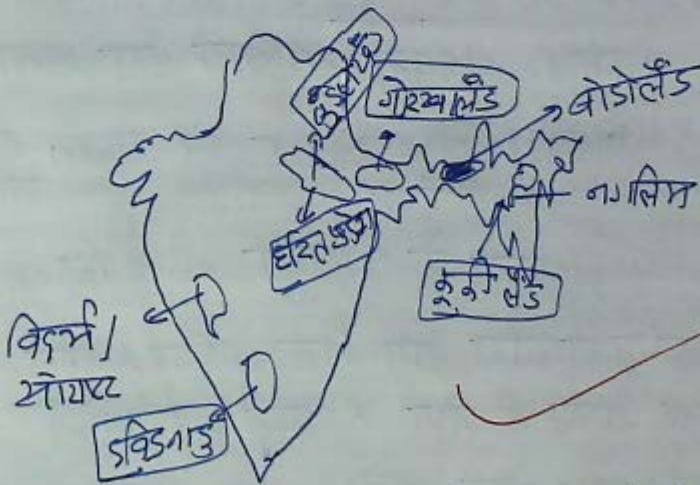 बुंदेलखंड
गोरखालैंड
बोडोलैंड
नगालिम
हरित प्रदेश
कूकी लैंड
विदर्भ/
सौराष्ट्र
द्रविडनाडु